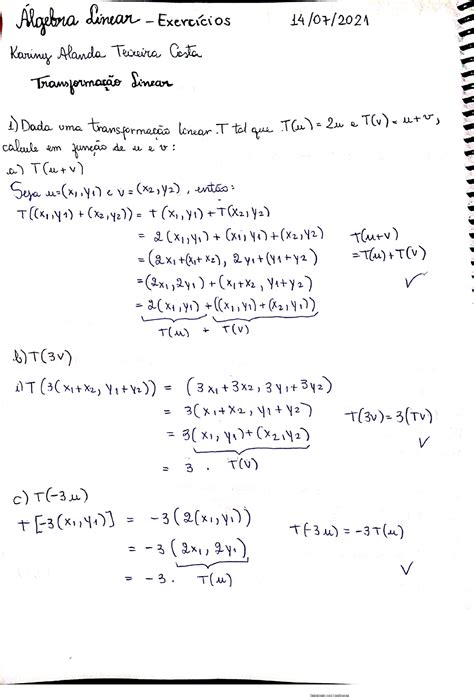 Álgebra Linear - Exercícios 14/07/2021
Kariny Alanda Teixeira Costa
Transformação Linear
1) Dada uma transformação linear T tal que T(u) = 2u e T(v) = u + v,
calcule em função de u e v:
a) T(u+v)
Seja u = (x₁, y₁) e v = (x₂, y₂), então:
T((x₁, y₁) + (x₂, y₂)) = t(x₁, y₁) + T(x₂, y₂)
= 2(x₁, y₁) + (x₁, y₁) + (x₂, y₂) T(u+v)
= (2x₁ + (x₁ + x₂), 2y₁ + (y₁ + y₂) = T(u) + T(v)
= (2x₁, 2y₁) + (x₁ + x₂, y₁ + y₂) ✓
= 2(x₁, y₁) + ((x₁, y₁) + (x₂, y₂))
T(u) + T(v)
b) T(3v)
i) T(3(x₁ + x₂, y₁ + y₂)) = (3x₁ + 3x₂, 3y₁ + 3y₂)
= 3(x₁ + x₂, y₁ + y₂) T(3v) = 3(Tv)
= 3(x₁, y₁) + (x₂, y₂) ✓
= 3 . T(v)
c) T(-3u)
t[-3(x₁, y₁)] = -3(2(x₁, y₁)) T(-3u) = -3T(u)
= -3(2x₁, 2y₁) ✓
= -3 . T(u)